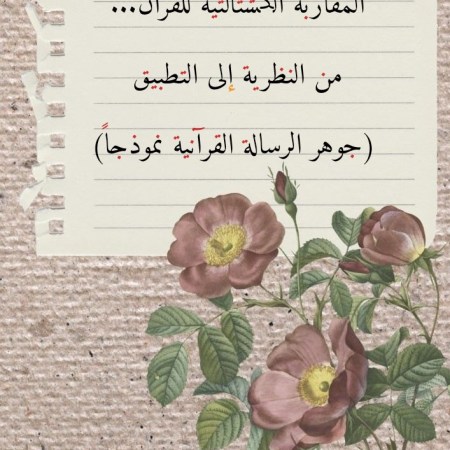 المقاربة الكشتالتية للقرآن...
من النظرية إلى التطبيق
(جوهر الرسالة القرآنية نموذجاً)